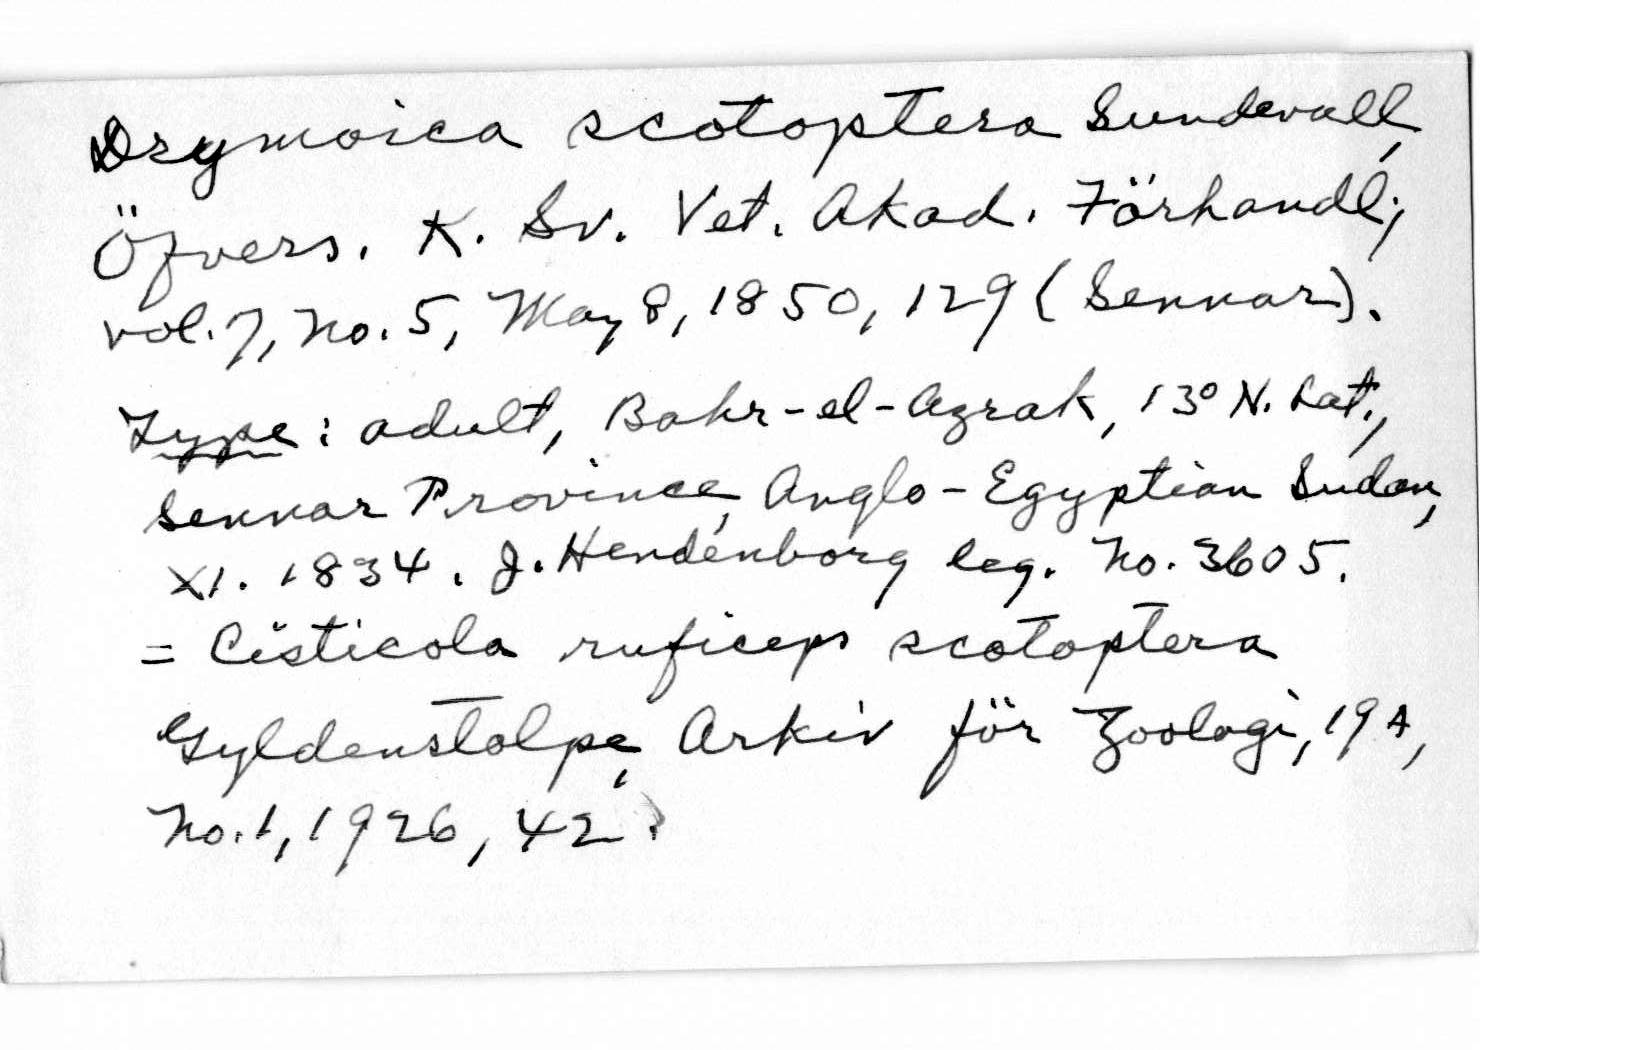 Drymoica scotoptera Sundevall,
Öfvers. K. Sv. Vet. Akad. Förhandl.,
vol. 7, No. 5, May 8, 1850, 129 (Sennar).
Type: adult, Bahr-el-Azrak, 13° N. Lat.,
Sennar Province, Anglo-Egyptian Sudan,
XI. 1834. J. Hendenborg leg. No. 3605.
= Cisticola ruficeps scotoptera
Gyldenstolpe, Arkiv för Zoologi, 19 A,
No. 1, 1926, 42.